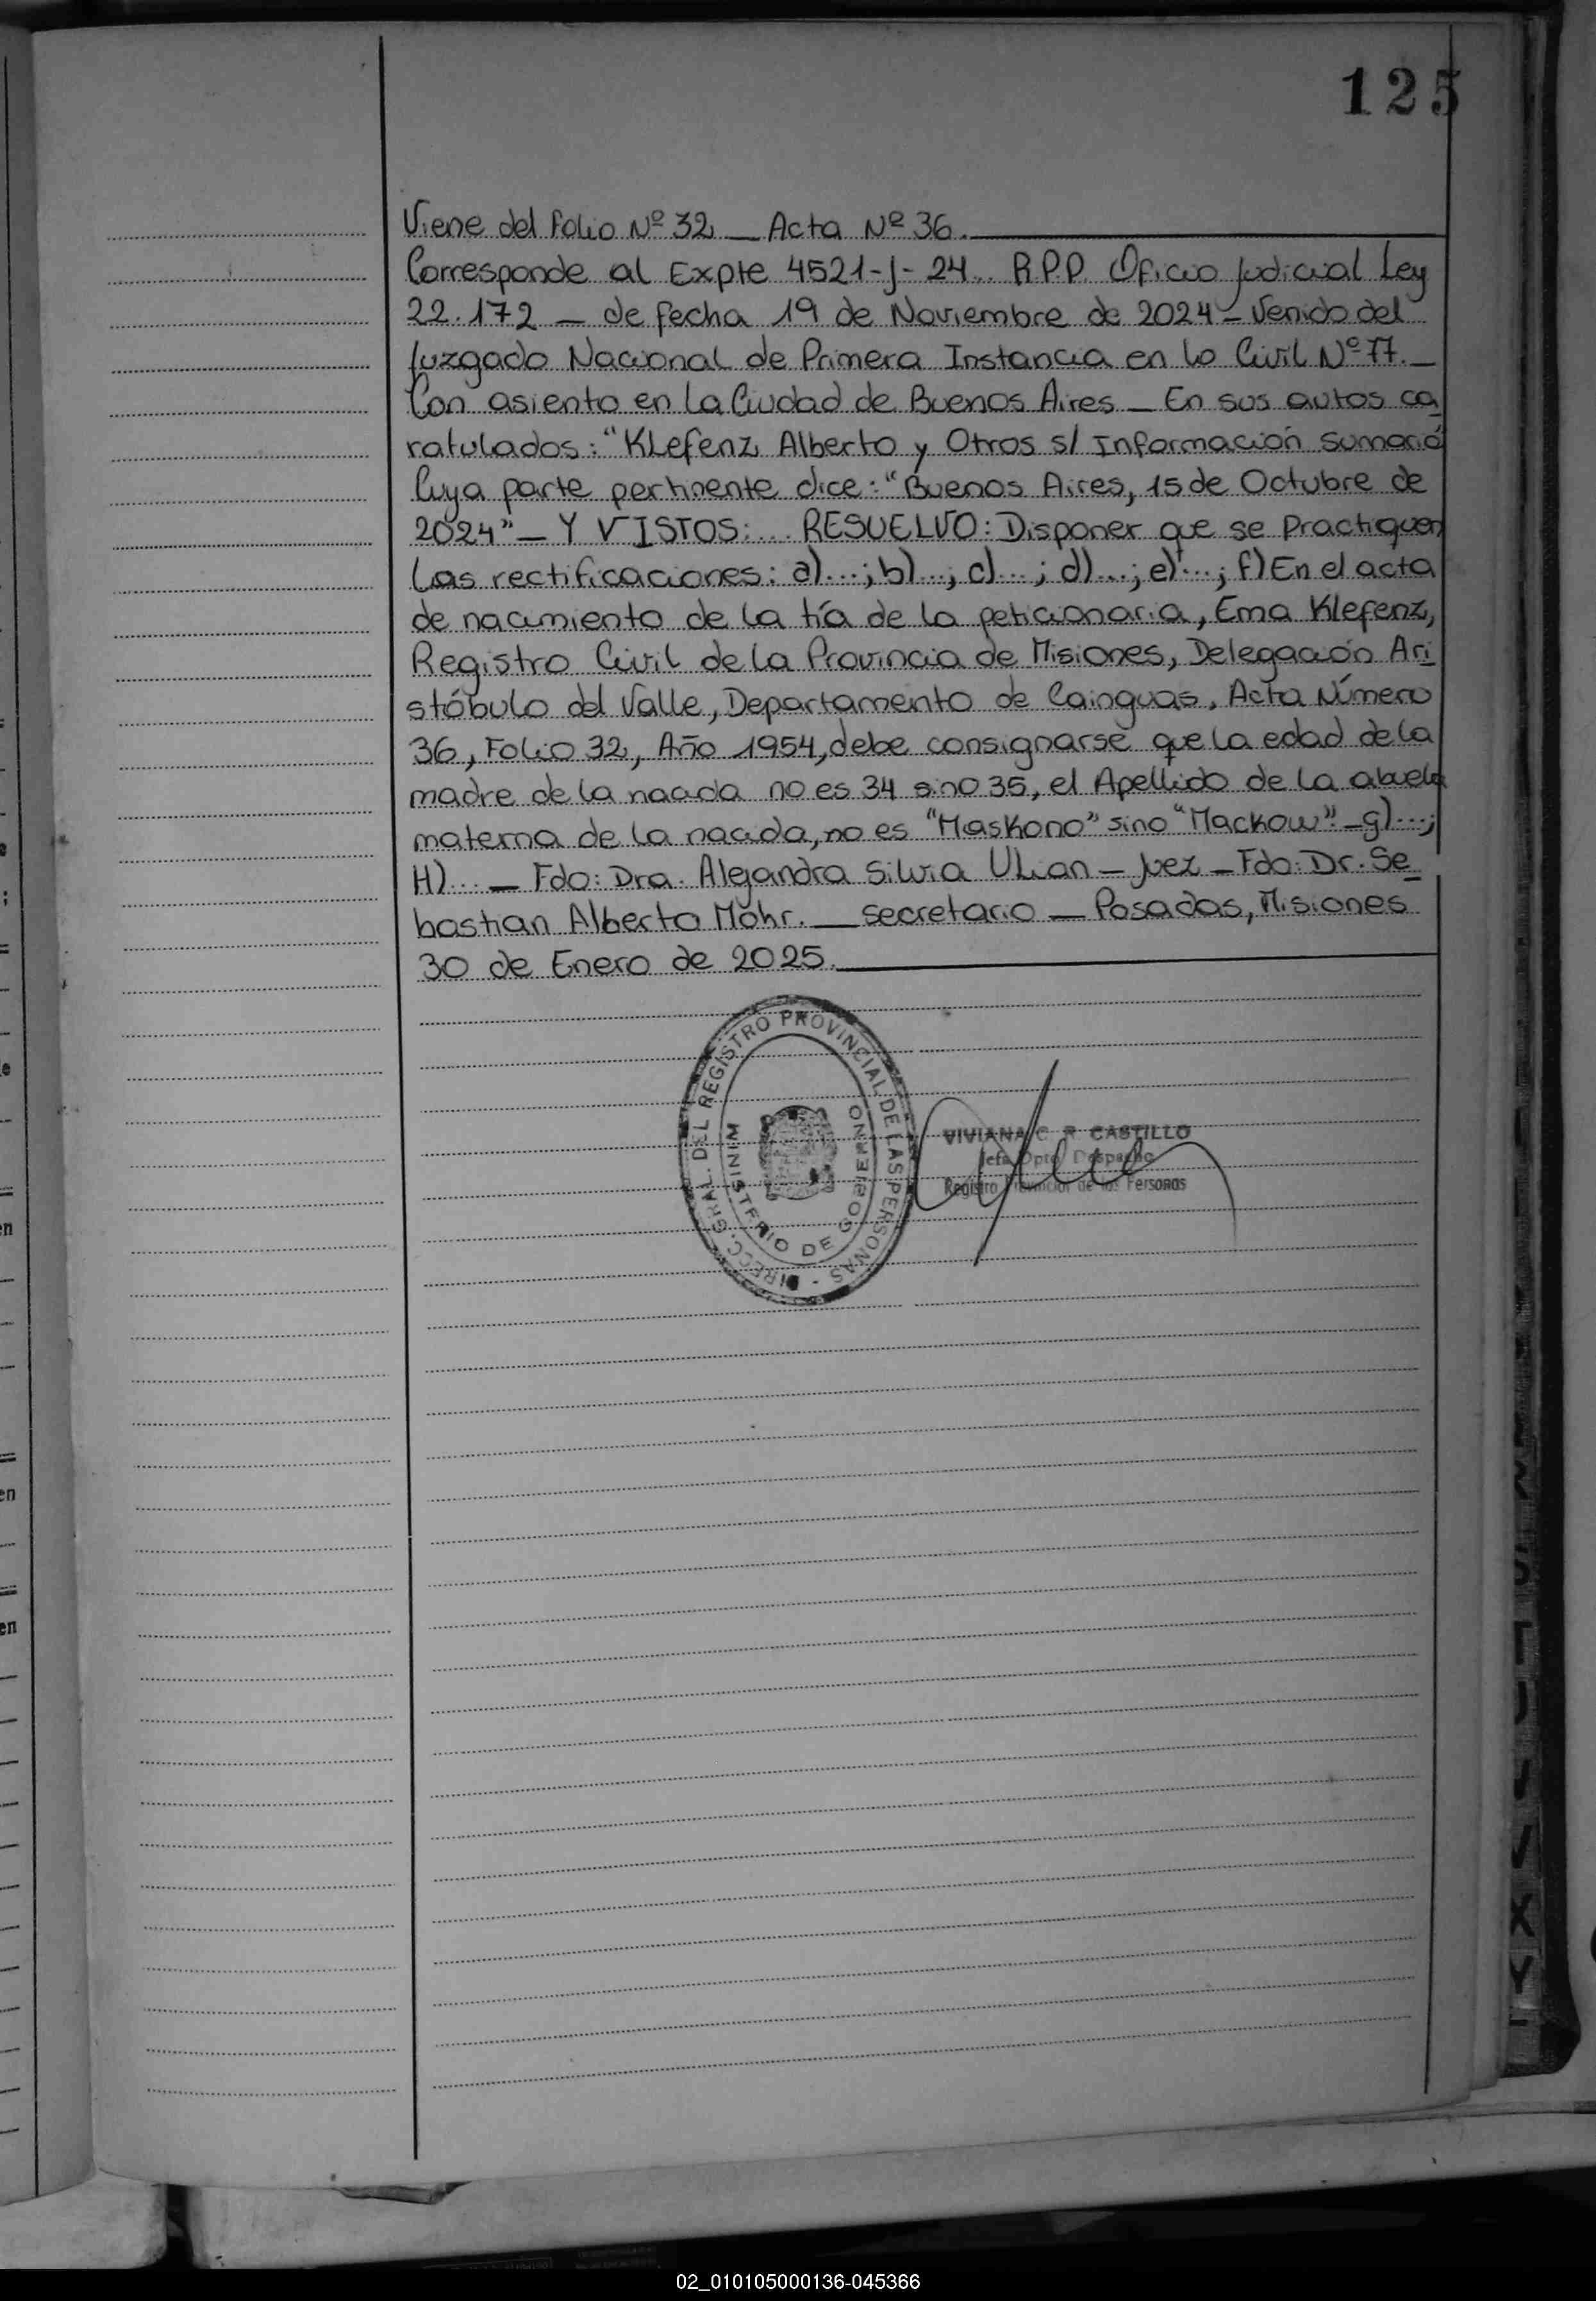 125
Viene del Folio Nº 32 — Acta Nº 36.
Corresponde al Expte 4521-J-24.. R.P.P. Oficio Judicial Ley
22.172 — de fecha 19 de Noviembre de 2024 – Venido del
Juzgado Nacional de Primera Instancia en lo Civil Nº 77. —
Con asiento en la Ciudad de Buenos Aires — En sus autos ca
ratulados: "Klefenz Alberto y Otros s/ Información Sumaria
Cuya parte pertinente dice: "Buenos Aires, 15 de Octubre de
2024" — Y VISTOS:... RESUELVO: Disponer que se Practiquen
Las rectificaciones: a)...; b)..., c)...; d)...; e)...; f) En el acta
de nacimiento de la tía de la peticionaria, Ema Klefenz,
Registro Civil de la Provincia de Misiones, Delegación Ari
stóbulo del Valle, Departamento de Cainguas, Acta Número
36, Folio 32, Año 1954, debe consignarse que la edad de la
madre de la nacida no es 34 sino 35, el Apellido de la abuela
materna de la nacida, no es "Maskono" sino "Mackow". – g)...;
H)... — Fdo: Dra. Alejandra Silvia Ulian – Juez – Fdo: Dr. Se
bastian Alberto Mohr. — secretario — Posadas, Misiones
30 de Enero de 2025.
DIRECC. GRAL. DEL REGISTRO PROVINCIAL DE LAS PERSONAS -
MINISTERIO DE GOBIERNO
VIVIANA C. R. CASTILLO
Jefa Dpto Despacho
Registro Provincial de las Personas
en
en
en
02_010105000136-045366